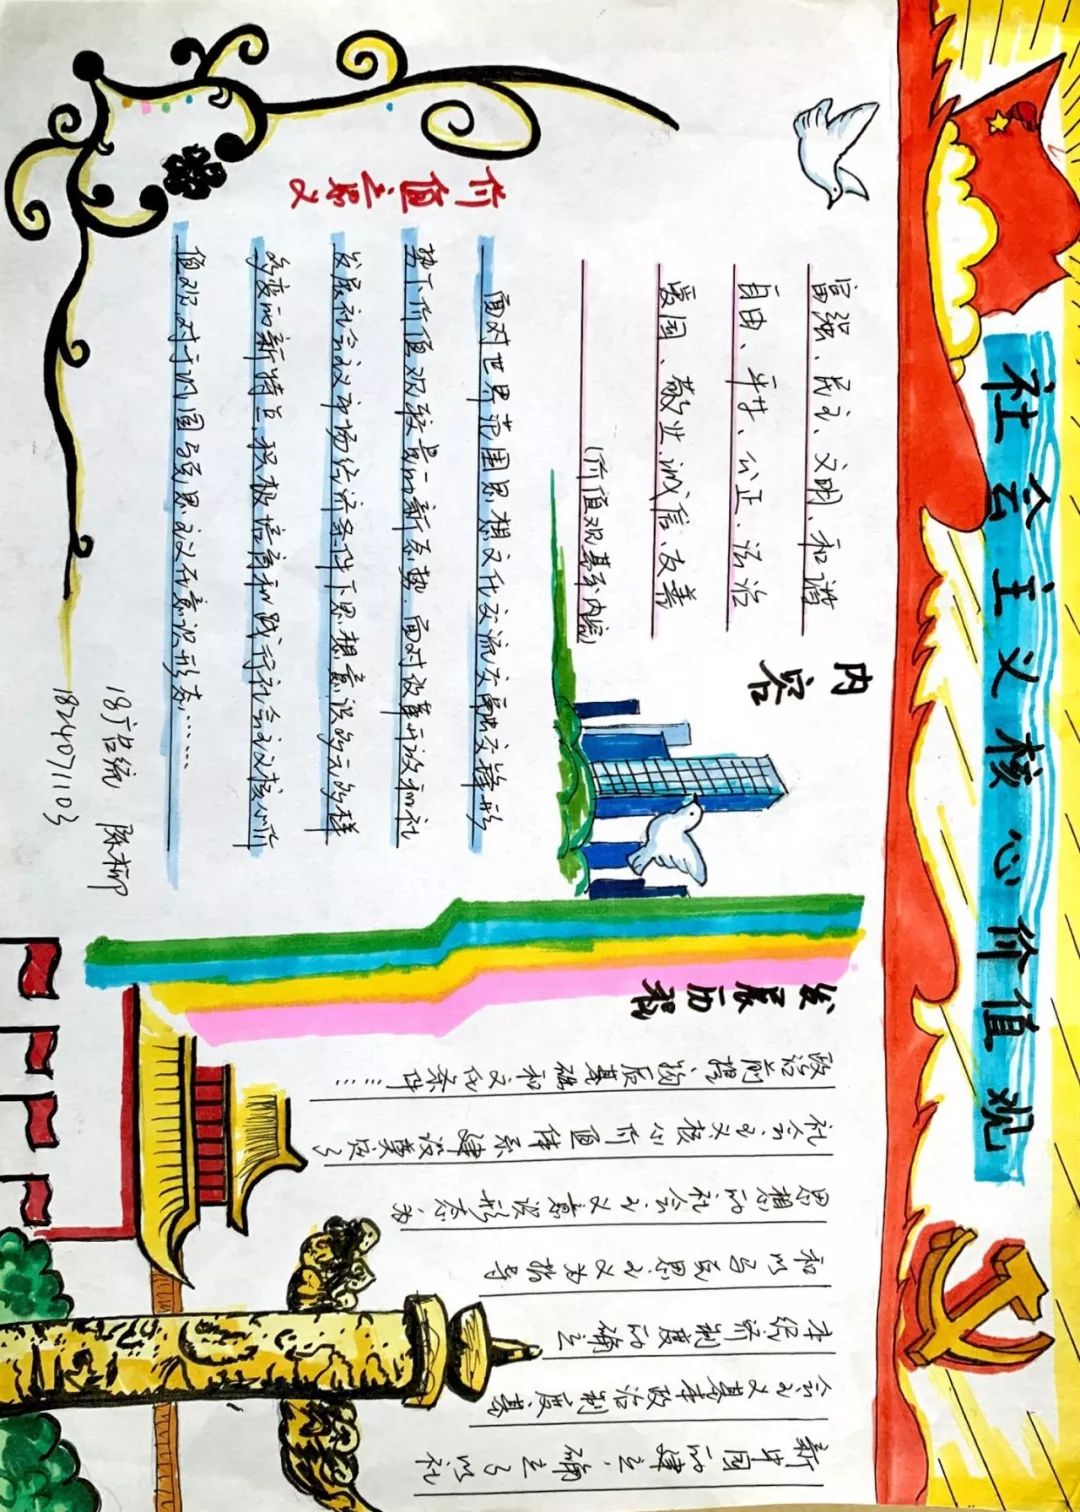 社会主义核心价值观
内容
富强、民主、文明、和谐
自由、平等、公正、法治
爱国、敬业、诚信、友善
(价值观基本内容)
价值意义
面对世界范围思想文化交流交融交锋形
势下价值观较量的新态势,面对改革开放和社
发展社会主义市场经济条件下思想意识多元多样
多变的新特点,积极培育和践行社会主义核心价
值观,对于巩固马克思主义在意识形态……
18广告统 陈柳
1824071103
发展历程
新中国的建立,确立了以社
会主义基本政治制度、基
本经济制度的确立
和以马克思主义为指导
思想的社会主义意识形态,为
社会主义核心价值体系建设奠定了
政治前提、物质基础和文化条件……